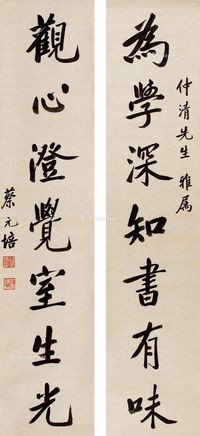 仲清先生 雅屬
為學深知書有味
觀心澄覺室生光
蔡元培